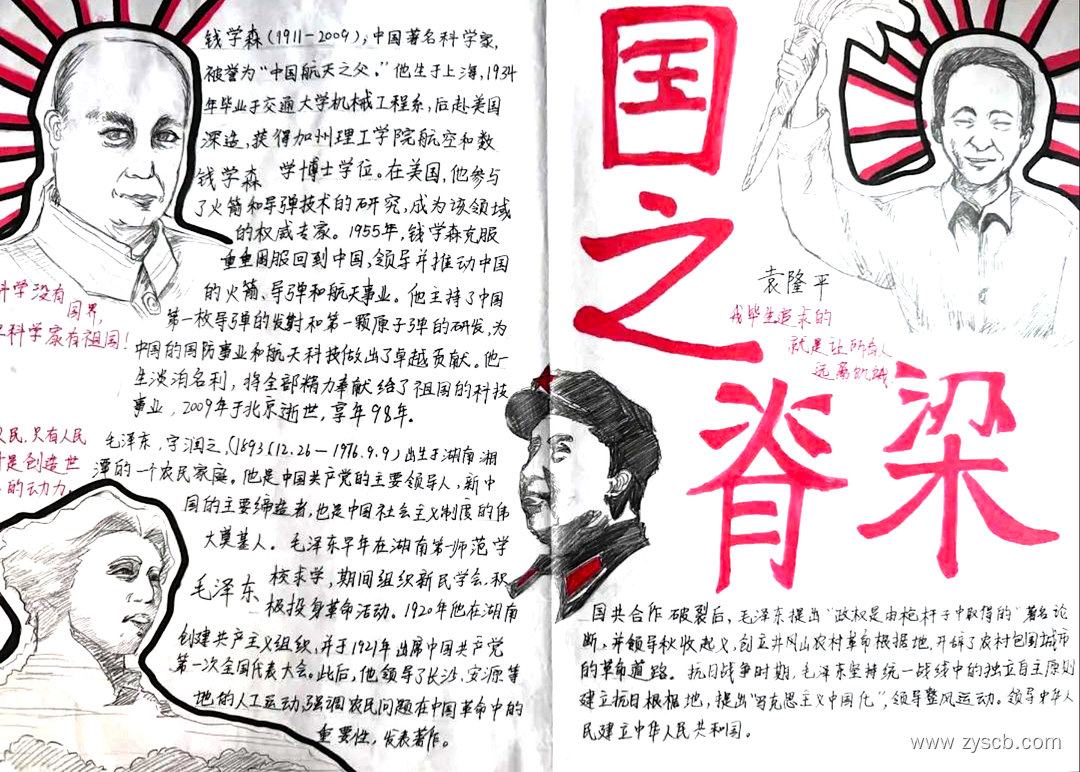 钱学森(1911-2009),中国著名科学家,
被誉为“中国航天之父。”他生于上海,1934
年毕业于交通大学机械工程系,后赴美国
深造,获得加州理工学院航空和数
钱学森 学博士学位。在美国,他参与
了火箭和导弹技术的研究,成为该领域
的权威专家。1955年,钱学森克服
重重困服回到中国,领导并推动中国
的火箭、导弹和航天事业。他主持了中国
第一枚导弹的发射和第一颗原子弹的研发,为
中国的国防事业和航天科技做出了卓越贡献。他一
生淡泊名利,将全部精力奉献给了祖国的科技
事业,2009年于北京逝世,享年98年。
科学没有
国界,
科学家有祖国!
人民,只有人民
是创造世
的动力
毛泽东,字润之,(1893(12.26—1976.9.9)出生于湖南湘
潭的一个农民家庭。他是中国共产党的主要领导人,新中
国的主要缔造者,也是中国社会主义制度的伟
大奠基人。毛泽东早年在湖南第一师范学
毛泽东 校求学,期间组织新民学会,积
极投身革命活动。1920年他在湖南
创建共产主义组织,并于1921年出席中国共产党
第一次全国代表大会。此后,他领导了长沙,安源等
地的人工运动,强调农民问题在中国革命中的
重要性,发表著作。
国之脊梁
袁隆平
我毕生追求的
就是让所有人
远离饥饿
国共合作破裂后,毛泽东提出“政权是由枪杆子中取得的”著名论
断,并领导秋收起义,创立井冈山农村革命根据地,开辟了农村包围城市
的革命道路。抗日战争时期,毛泽东坚持统一战线中的独立自主原则
建立抗日根据地,提出“马克思主义中国化”,领导整风运动。领导中华人
民建立中华人民共和国。
www.zyscb.com